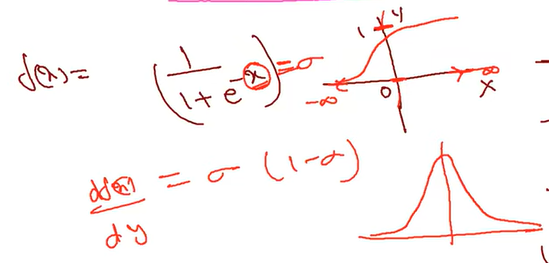 f(x) = ( 1 / (1 + e^-x) ) = σ
1 y
-∞ 0 ∞
x
df(x) / dy = σ (1-σ)